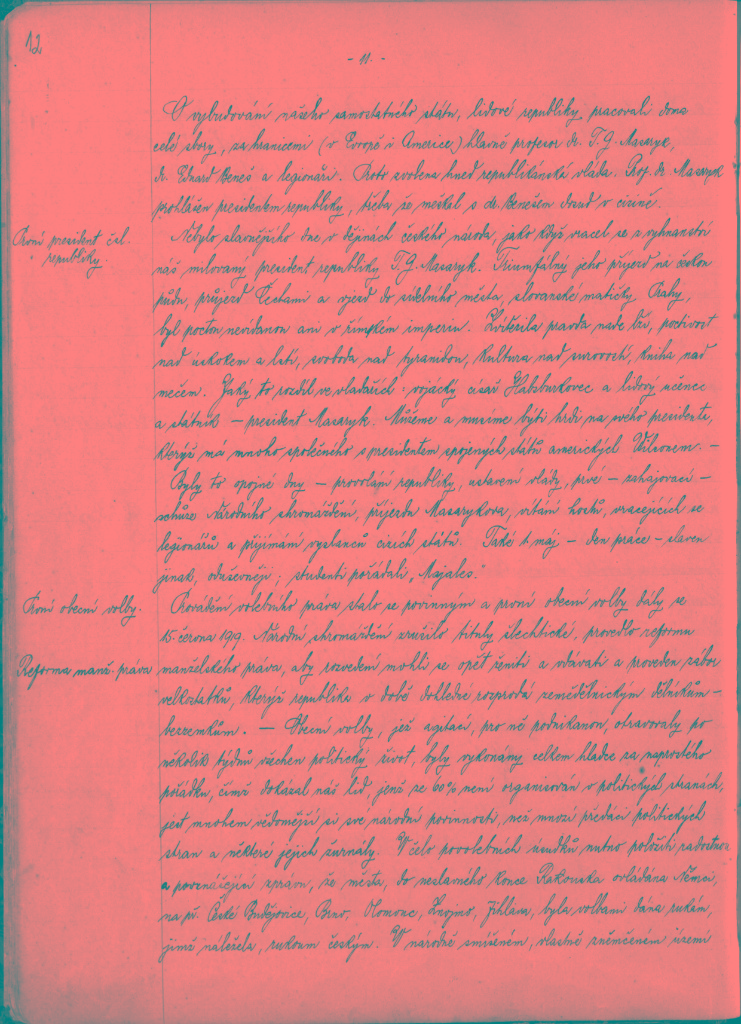 12
- 11. -
O vybudování našeho samostatného státu, lidové republiky pracovali doma
celé sbory, za hranicemi (v Evropě i Americe) hlavně profesor dr. T. G. Masaryk,
dr. Eduard Beneš a legionáři. Proto zvolena hned republikánská vláda. Prof. dr. Masaryk
prohlášen presidentem republiky, třeba že meškal s dr. Benešem dosud v cizině.
První president čsl.
republiky.
Nebylo slavnějšího dne v dějinách českého národa, jako když vracel se z vyhnanství
náš milovaný president republiky T. G. Masaryk. Triumfálný jeho příjezd na českou
půdu, průjezd Čechami a vjezd do sídelního města, slovanské matičky Prahy,
byl poctou nevídanou ani v římském imperiu. Zvítězila pravda nade lží, poctivost
nad úskokem a lstí, svoboda nad tyranidou, kultura nad surovostí, kniha nad
mečem. Jaký to rozdíl ve vladařích: vojácký císař Habsburkovec a lidový učenec
a státník - president Masaryk. Můžeme a musíme býti hrdi na svého presidenta,
kterýž má mnoho společného s presidentem spojených států amerických Wilsonem. -
Byly to opojné dny - provolání republiky, ustavení vlády, prvé - zahajovací -
schůze Národního shromáždění, příjezdu Masarykova, vítání hostů, vracejících se
legionářů a přijímání vyslanců cizích států. Také 1. máj - den práce - slaven
jinak, oduševněji; studenti pořádali "Majales."
První obecní volby.
Provádění volebního práva stalo se povinným a první obecní volby dály se
15. června 1919. Národní shromáždění zrušilo tituly šlechtické, provedlo reformu
Reforma manž. práva
manželského práva, aby rozvedení mohli se opět ženiti a vdávati a proveden zábor
velkostatků, kterýž republika v době dohledné rozprodá zemědělnickým dělníkům -
bezzemkům. - Obecní volby, jež agitací, pro ně podnikanou, otravovaly po
několik týdnů všechen politický život, byly vykonány celkem hladce za naprostého
pořádku, čímž dokázal náš lid, jenž ze 60% není organisován v politických stranách,
jest mnohem vědomější si své národní povinnosti, než mnozí předáci politických
stran a některé jejich žurnály. V čelo povolebních úsudků nutno položiti radostnou
a povznášející zprávu, že města, do neslavného konce Rakouska ovládána Němci,
na př. České Budějovice, Brno, Olomouc, Znojmo, Jihlava, byla volbami dána rukám,
jimž náležela, rukoum českým. V národně smíšeném, vlastně zněmčeném území